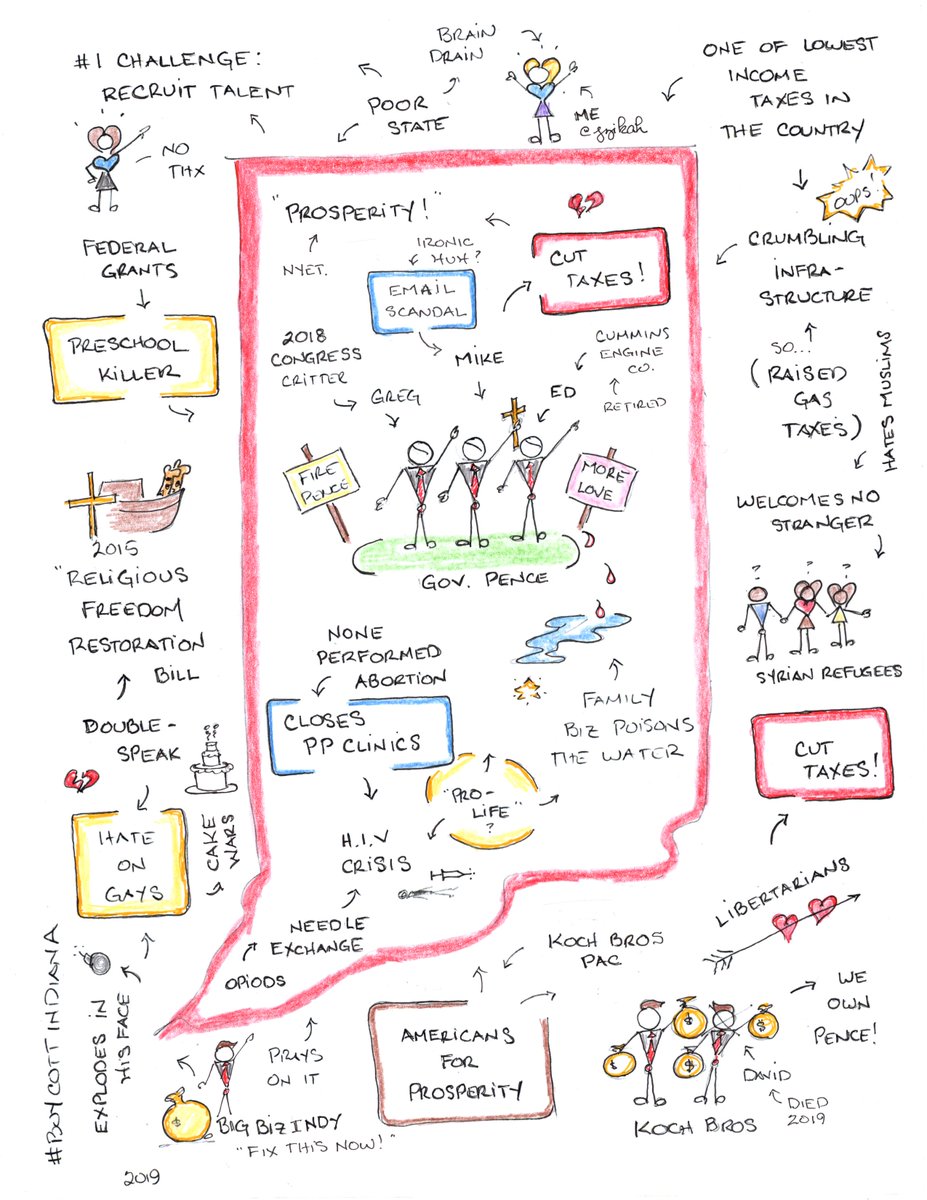 BRAIN
DRAIN
#1 CHALLENGE:
RECRUIT TALENT
POOR
STATE
ME
ONE OF LOWEST
INCOME
TAXES IN
THE COUNTRY
NO
THX
OOPS!
"PROSPERITY!"
NYET.
IRONIC
HUH?
EMAIL
SCANDAL
CUT
TAXES!
CRUMBLING
INFRA-
STRUCTURE
FEDERAL
GRANTS
PRESCHOOL
KILLER
2018
CONGRESS
CRITTER
GREG
MIKE
ED
CUMMINS
ENGINE
CO.
RETIRED
SO...
(RAISED
GAS
TAXES)
HATES MUSLIMS
FIRE
PENCE
MORE
LOVE
GOV. PENCE
WELCOMES NO
STRANGER
? ? ?
SYRIAN REFUGEES
2015
"RELIGIOUS
FREEDOM
RESTORATION
BILL
DOUBLE-
SPEAK
HATE
ON
GAYS
CAKE
WARS
NONE
PERFORMED
ABORTION
CLOSES
PP CLINICS
FAMILY
BIZ POISONS
THE WATER
"PRO-
LIFE"
?
H.I.V
CRISIS
NEEDLE
EXCHANGE
OPIODS
CUT
TAXES!
LIBERTARIANS
KOCH BROS
PAC
AMERICANS
FOR
PROSPERITY
WE
OWN
PENCE!
$ $ $ $
DAVID
DIED
2019
KOCH BROS
#BOYCOTT INDIANA
EXPLODES IN
HIS FACE
PRAYS
ON IT
$
BIG BIZ INDY
"FIX THIS NOW!"
2019